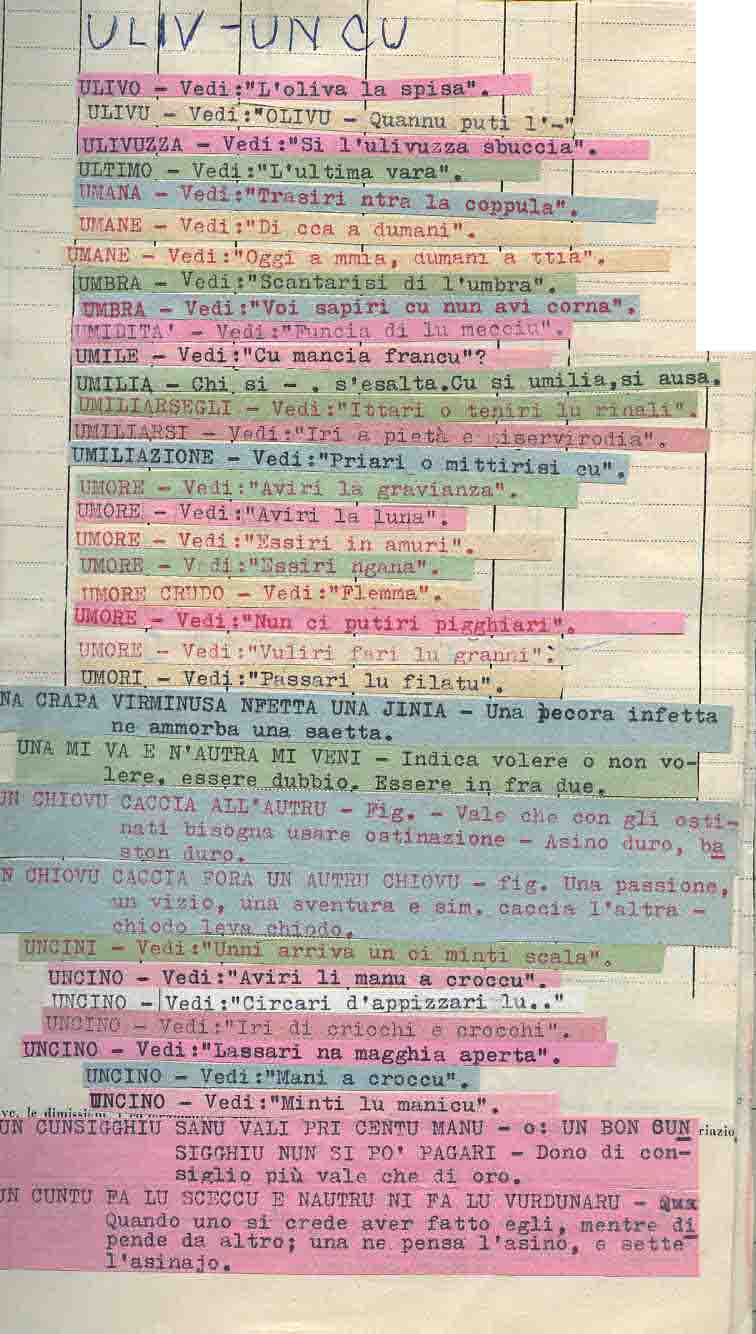 ULIV-UNCU
ULIVO - Vedi:"L'oliva la spisa".
ULIVU - Vedi:"OLIVU - Quannu puti l'-"
ULIVUZZA - Vedi:"Si l'ulivuzza sbuccia".
ULTIMO - Vedi:"L'ultima vara".
UMANA - Vedi:"Trasiri ntra la coppula".
UMANE - Vedi:"Di cca a dumani".
UMANE - Vedi:"Oggi a mmia, dumani a ttia".
UMBRA - Vedi:"Scantarisi di l'umbra".
UMBRA - Vedi:"Voi sapiri cu nun avi corna".
UMIDITA' - Vedi:"Funcia di lu mecciu".
UMILE - Vedi:"Cu mancia francu"?
UMILIA - Chi si - . s'esalta.Cu si umilia,si ausa.
UMILIARSEGLI - Vedi:"Ittari o teniri lu rinali".
UMILIARSI - Vedi:"Iri a pietà e miservirodia".
UMILIAZIONE - Vedi:"Priari o mittirisi cu".
UMORE - Vedi:"Aviri la gravianza".
UMORE - Vedi:"Aviri la luna".
UMORE - Vedi:"Essiri in amuri".
UMORE - Vedi:"Essiri ngana".
UMORE CRUDO - Vedi:"Flemma".
UMORE - Vedi:"Nun ci putiri pigghiari".
UMORE - Vedi:"Vuliri fari lu granni":
UMORI - Vedi:"Passari lu filatu".
NA CRAPA VIRMINUSA NFETTA UNA JINIA - Una pecora infetta
ne ammorba una saetta.
UNA MI VA E N'AUTRA MI VENI - Indica volere o non vo-
lere, essere dubbio. Essere in fra due.
UN CHIOVU CACCIA ALL'AUTRU - Fig. - Vale che con gli osti-
nati bisogna usare ostinazione - Asino duro, ba
ston duro.
N CHIOVU CACCIA FORA UN AUTRU CHIOVU - fig. Una passione,
un vizio, una sventura e sim. caccia l'altra -
chiodo leva chiodo.
UNCINI - Vedi:"Unni arriva un ci minti scala".
UNCINO - Vedi:"Aviri li manu a croccu".
UNCINO - Vedi:"Circari d'appizzari lu.."
UNCINO - Vedi:"Iri di cricchi e crocchi".
UNCINO - Vedi:"Lassari na magghia aperta".
UNCINO - Vedi:"Mani a croccu".
UNCINO - Vedi:"Minti lu manicu".
ve, le dimissioni
UN CUNSIGGHIU SANU VALI PRI CENTU MANU - o: UN BON CUN riazio
SIGGHIU NUN SI PO' PAGARI - Dono di con-
siglio più vale che di oro.
UN CUNTU FA LU SCECCU E NAUTRU NI FA LU VURDUNARU - Qua
Quando uno si crede aver fatto egli, mentre di
pende da altro; una ne pensa l'asino, e sette
l'asinajo.